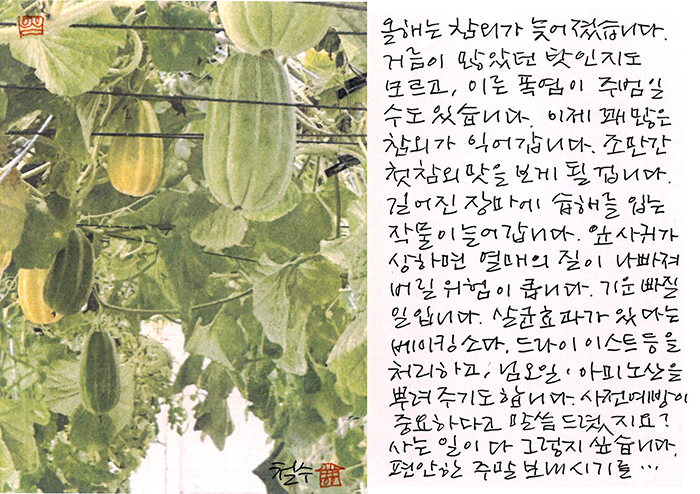 올해는 참외가 늦어졌습니다.
거름이 많았던 탓인지도
모르고, 이른 폭염이 주범일
수도 있습니다. 이제 꽤 많은
참외가 익어갑니다. 조만간
첫 참외 맛을 보게 될 겁니다.
길어진 장마에 습해를 입는
작물이 늘어갑니다. 잎사귀가
상하면 열매의 질이 나빠져
버릴 위험이 큽니다. 기운 빠질
일입니다. 살균효과가 있다는
베이킹소다, 드라이이스트 등을
처리하고, 님오일·아미노산을
뿌려주기도 합니다. 사전예방이
중요하다고 말씀드렸지요?
사는 일이 다 그렇지 싶습니다.
편안한 주말 보내시기를…
철수